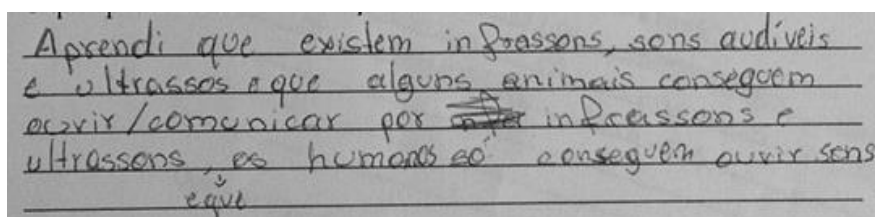 Aprendi que existem infrassons, sons audíveis
e ultrassos e que alguns animais conseguem
ouvir/comunicar por infrassons e
ultrassons, os humanos só conseguem ouvir sons
e que